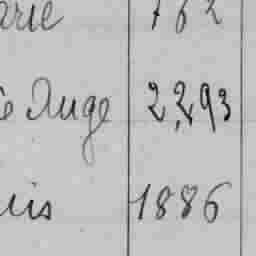 arie 762
e Ange 2,293
uis 1886